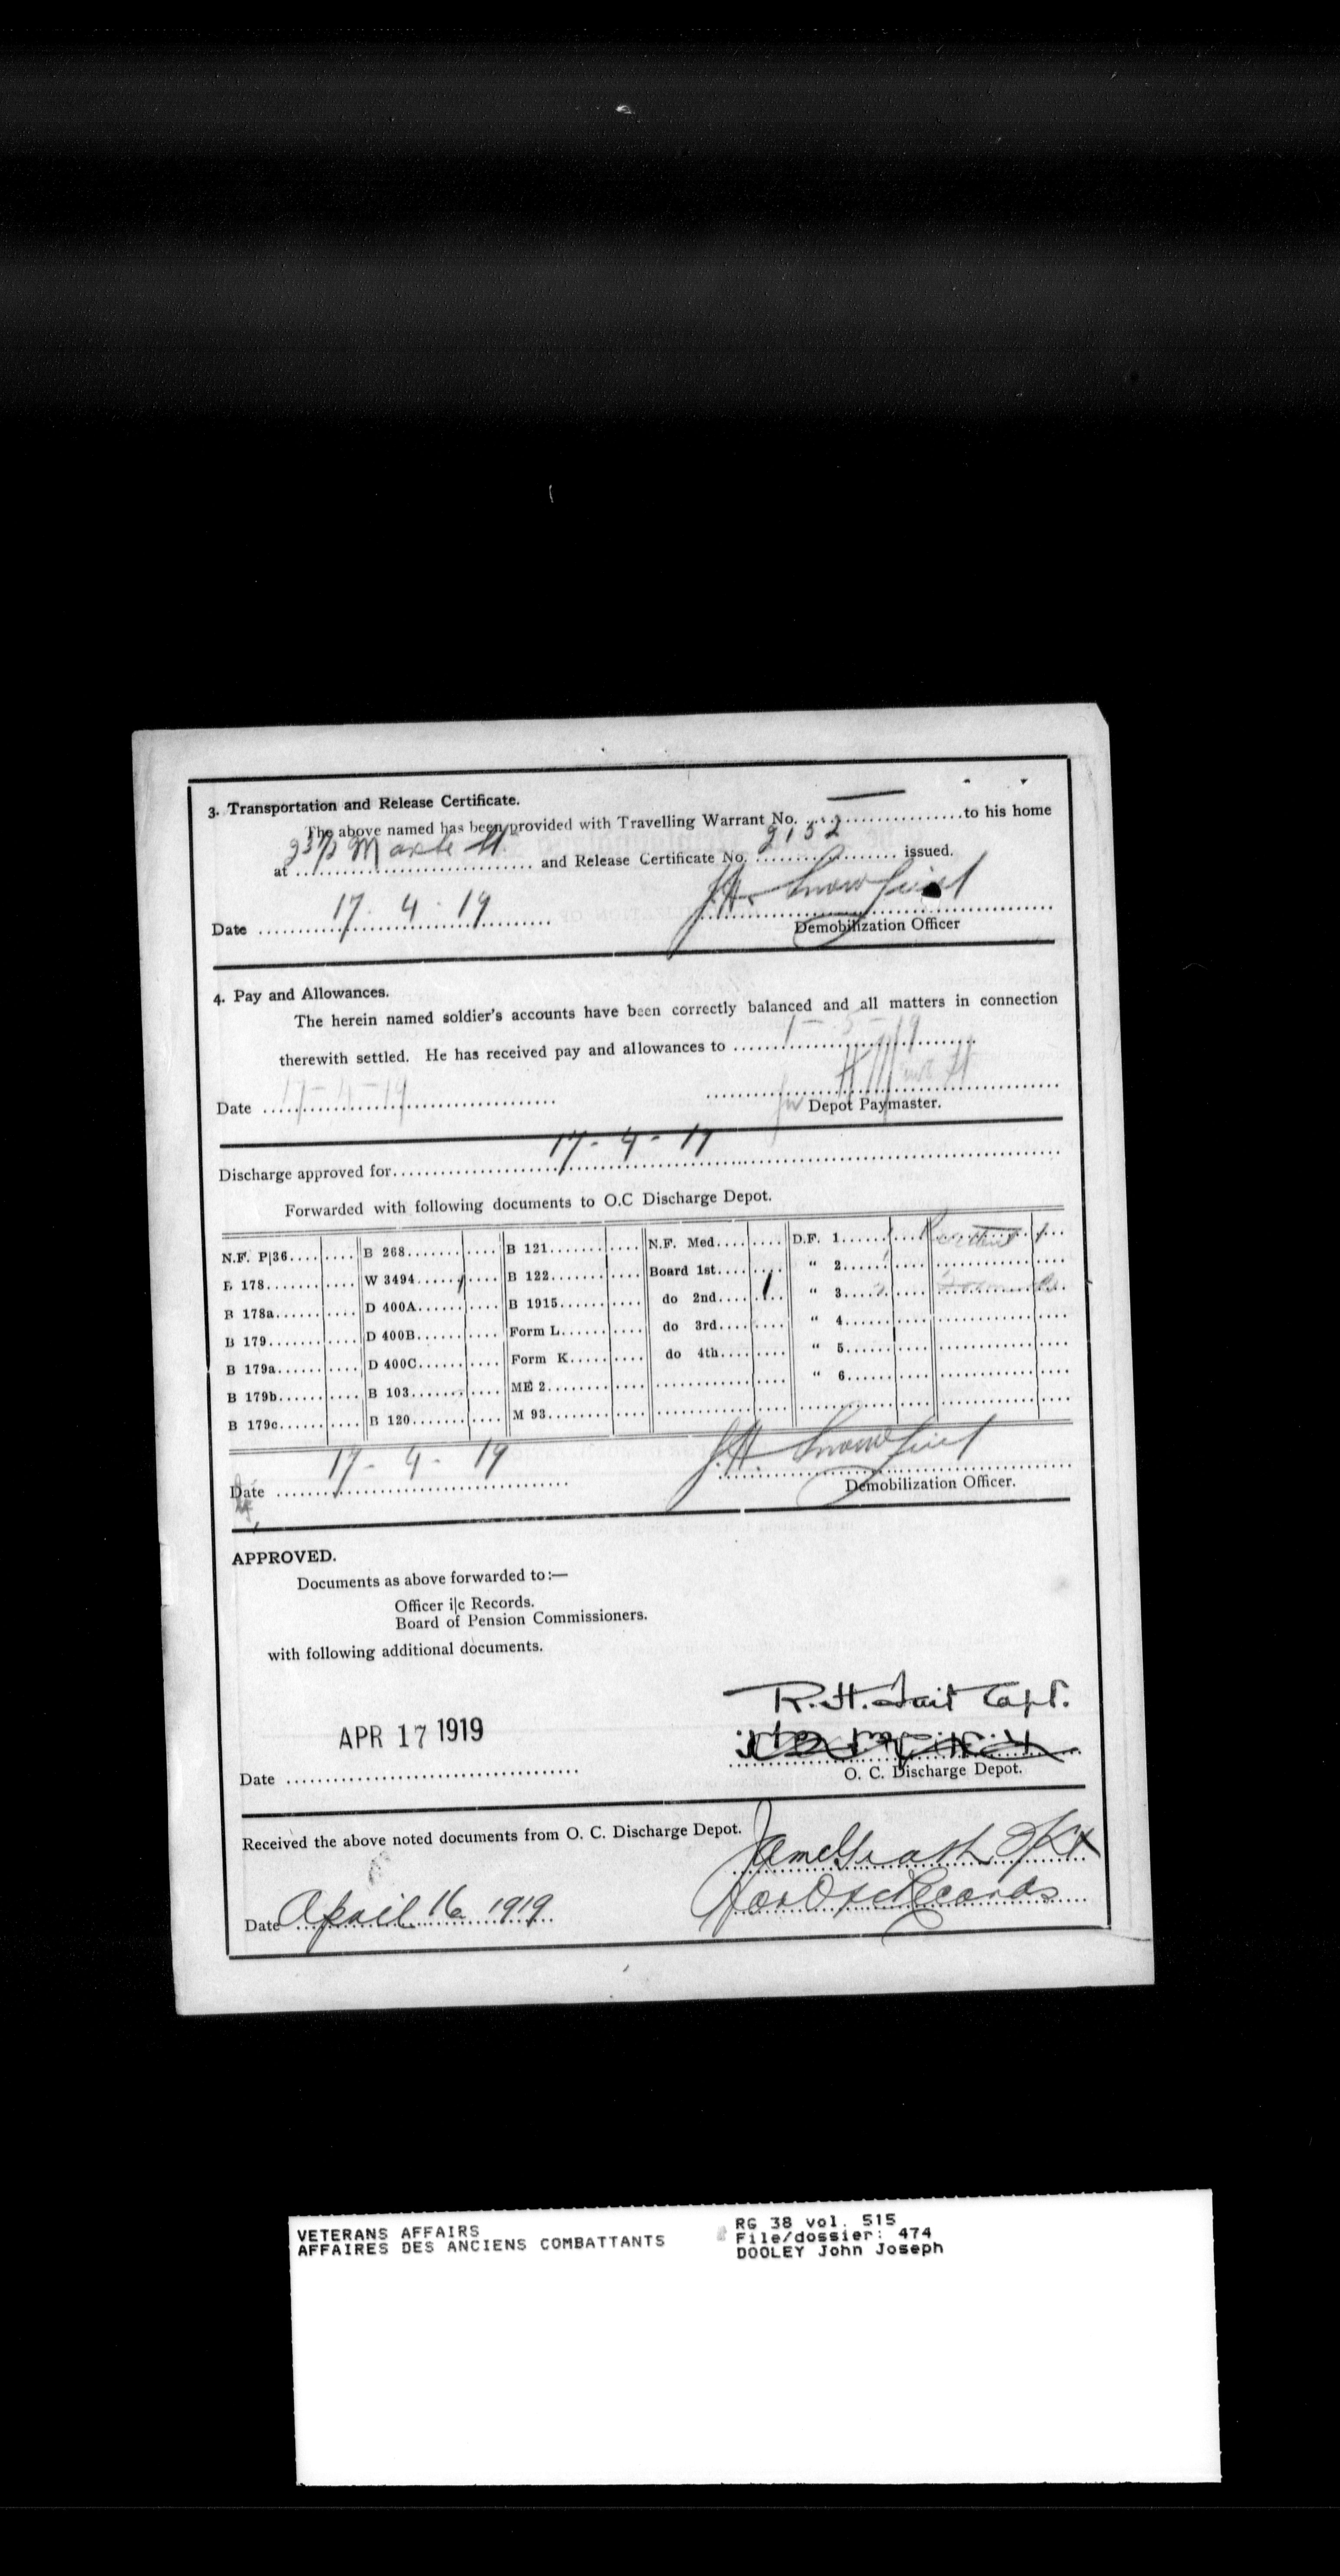 3. Transportation and Release Certificate.
The above named has been provided with Travelling Warrant No. — to his home
at St. and Release Certificate No. 2132 issued.
Date 17. 4. 19
Demobilization Officer
4. Pay and Allowances.
The herein named soldier's accounts have been correctly balanced and all matters in connection
therewith settled. He has received pay and allowances to
Date 17-4-19
Depot Paymaster.
Discharge approved for 17-4-19
Forwarded with following documents to O.C Discharge Depot.
N.F. P|36 B 268 B 121 N.F. Med. D.F. 1
B 178 W 3494 B 122 Board 1st " 2
B 178a D 400A B 1915 do 2nd 1 " 3
B 179 D 400B Form L do 3rd " 4
B 179a D 400C Form K do 4th " 5
B 179b B 103 ME 2 " 6
B 179c B 120 M 93
Date 17-4-19 J.H.
Demobilization Officer.
APPROVED.
Documents as above forwarded to:—
Officer i|c Records.
Board of Pension Commissioners.
with following additional documents.
R.H. Tait Capt.
APR 17 1919
Date
O. C. Discharge Depot.
Received the above noted documents from O. C. Discharge Depot.
Records
Date April 16 1919
VETERANS AFFAIRS
AFFAIRES DES ANCIENS COMBATTANTS
RG 38 vol. 515
File/dossier: 474
DOOLEY John Joseph